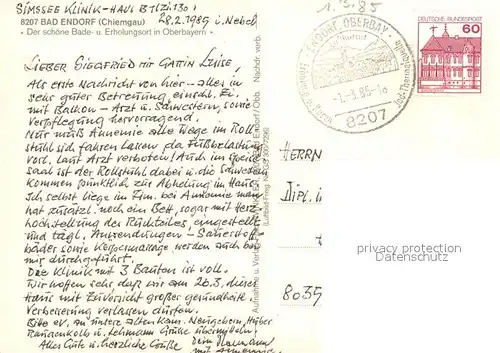 SIMSSEE KLINIK-HAUS B1 Zi 130 i
8207 BAD ENDORF (Chiemgau) 28.2.1985 i. Nebel
• Der schöne Bade- u. Erholungsort in Oberbayern •
1.3.85
DEUTSCHE BUNDESPOST
60
ENDORF, OBERBAY.
-1.-3.85-10
8207
LIEBER SIEGFRIED MIT GATTIN LUISE,
Als erste Nachricht von hier – alles in
sehr guter Betreuung, einschl. Zi.
mit Balkon – Arzt u. Schwestern, sowie
Verpflegung hervorragend.
Nur muß Annemie alle Wege im Roll
stuhl sich fahren lassen da Fußbelastung
vorl. laut Arzt verboten! Auch im Speise
saal ist der Rollstuhl dabei u. die Schwestern
kommen pünktlich zur Abholung im Haus.
Ich selbst liege im Zim. bei Annemie man
hat zusätzl. noch ein Bett, sogar mit Herz
hochstellung des Rückteiles, eingestellt
und tägl. Anwendungen – Sauerstoff
bäder sowie Körpermassage werden auch bei
mir durchgeführt.
Die Klinik mit 3 Bauten ist voll.
Wir hoffen sehr daß wir am 20.3. dieses
Haus mit Zuversicht großer gesundheitl.
Verbesserung verlassen dürfen.
Bitte ev. an unsere alten Kam. Neugebern, Huber
Lehmann Grüße übermitteln.
Alles Gute u. herzliche Grüße Dein Hermann
mit Annemie
HERRN
Dipl. i
8035
privacy protection
Datenschutz